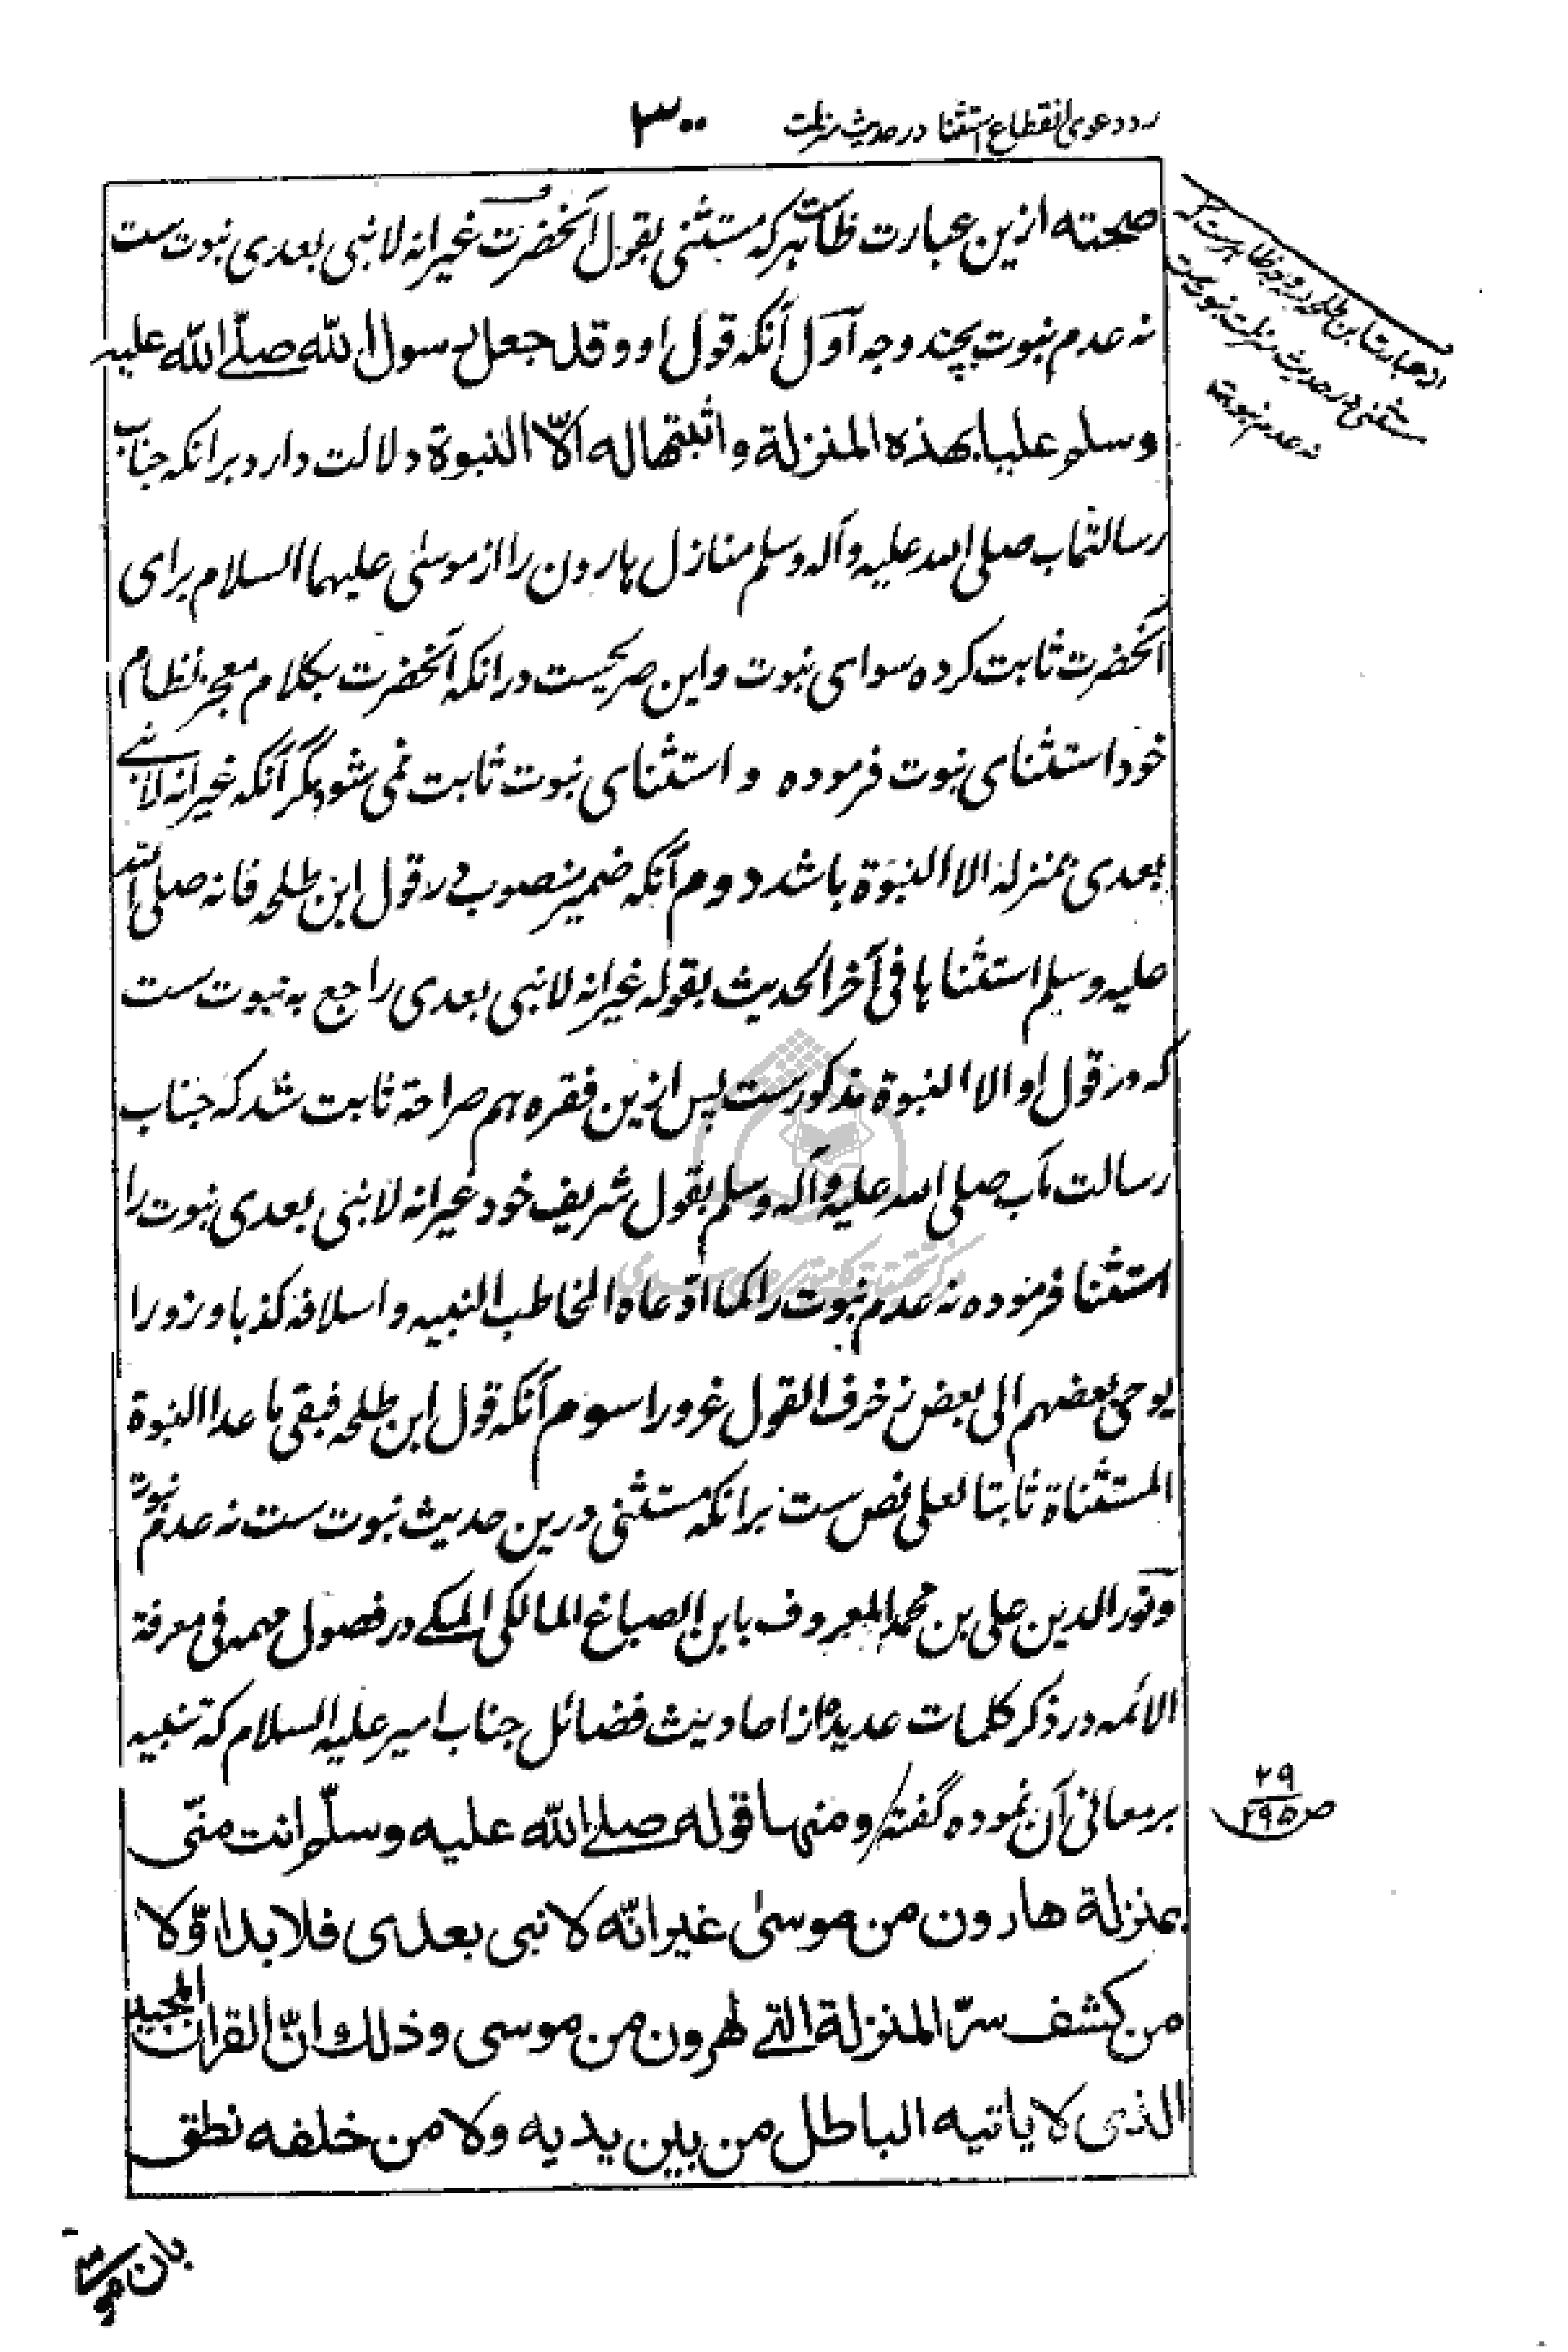 رد دعوی انقطاع استثنا در حدیث منزلت
۳۰۰
صحته ازین عبارت ظاهرست که مستثنی بقول آنحضرت غیر انه لا نبی بعدی نبوت ست
نه عدم نبوت بچند وجه اول آنکه قول او و قد جعل رسول الله صلّے الله علیه
وسلم علیا بهذه المنزلة و اثبتها له الّا النبوة دلالت دارد بر انکه جناب
رسالتمآب صلی الله علیه و آله و سلم منازل هارون را از موسیٰ علیهما السلام برای
آنحضرت ثابت کرده سوای نبوت و این صریحست در انکه آنحضرت بکلام معجز نظام
خود استثنای نبوت فرموده و استثنای نبوت ثابت نمی شود مگر آنکه غیر انه لا نبے
بعدی بمنزله الا النبوة باشد دوم آنکه ضمیر منصوب در قول ابن طلحه فانه صلی الله
علیه وسلم استثناها فی آخر الحدیث بقوله غیر انه لا نبی بعدی راجع به نبوت ست
که در قول او الا النبوة مذکورست پس ازین فقره هم صراحة ثابت شد که جناب
رسالت مآب صلی الله علیه و آله وسلم بقول شریف خود غیر انه لا نبی بعدی نبوت را
استثنا فرموده نه عدم نبوت را کما ادّعاه المخاطب النبیه و اسلافه کذبا و زورا
یوحی بعضهم الی بعض زخرف القول غرورا سوم آنکه قول ابن طلحه فبقی ما عدا النبوة
المستثناة ثابتا لعلی نص ست بر انکه مستثنی درین حدیث نبوت ست نه عدم نبوت
و نور الدین علی بن محمد المعروف بابن الصباغ المالکی المکے در فصول مهمه فی معرفة
الائمه در ذکر کلمات عدیده از احادیث فضائل جناب امیر علیه السلام که تنبیه
بر معانی آن نموده گفته و منها قوله صلے الله علیه وسلّم انت منّی
بمنزلة هارون من موسیٰ غیر انّه لا نبی بعدی فلا بد اوّلا
من کشف سرّ المنزلة التے لهرون من موسی وذلك انّ القران المجید
الذی لا یاتیه الباطل من بین یدیه ولا من خلفه نطق
از عبارت ابن طلحه بسه وجه ظاهرست که
مستثنی در حدیث منزلت نبوت ست
نه عدم نبوت
۲۹
ص ۲۹۵
بان موسی